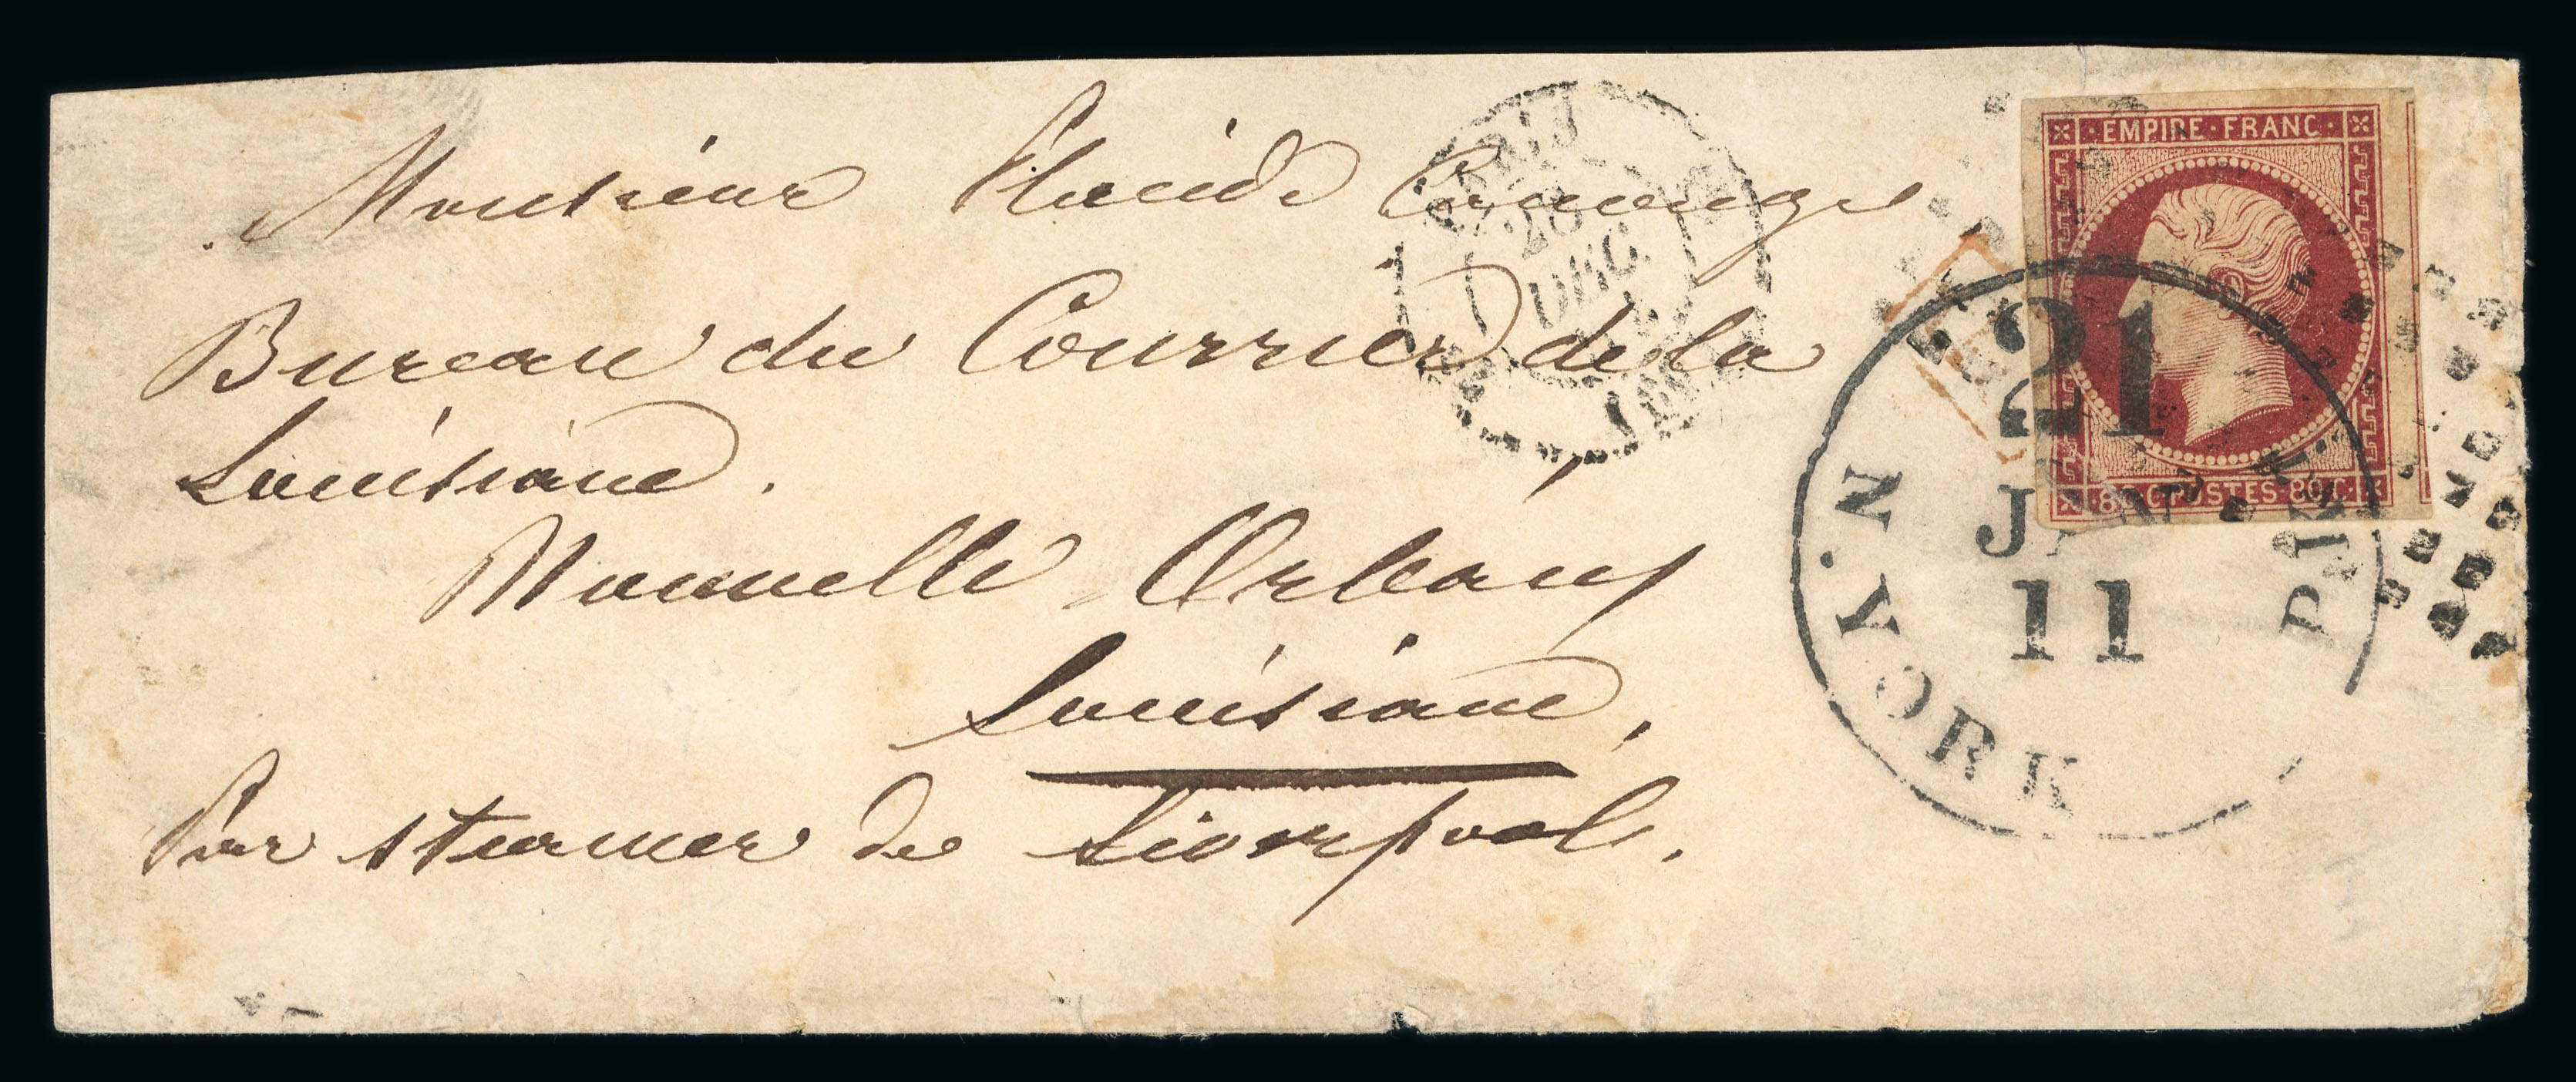 Monsieur Placide Canonge
Bureau du Courrier de la
Louisiane.
Nouvelle Orléans
Louisiane,
Par steamer de Liverpool.
PARIS
28
DÉC.
EMPIRE · FRANC ·
· 80 C POSTES 80 C ·
21
JAN
11
N. YORK
PKT.